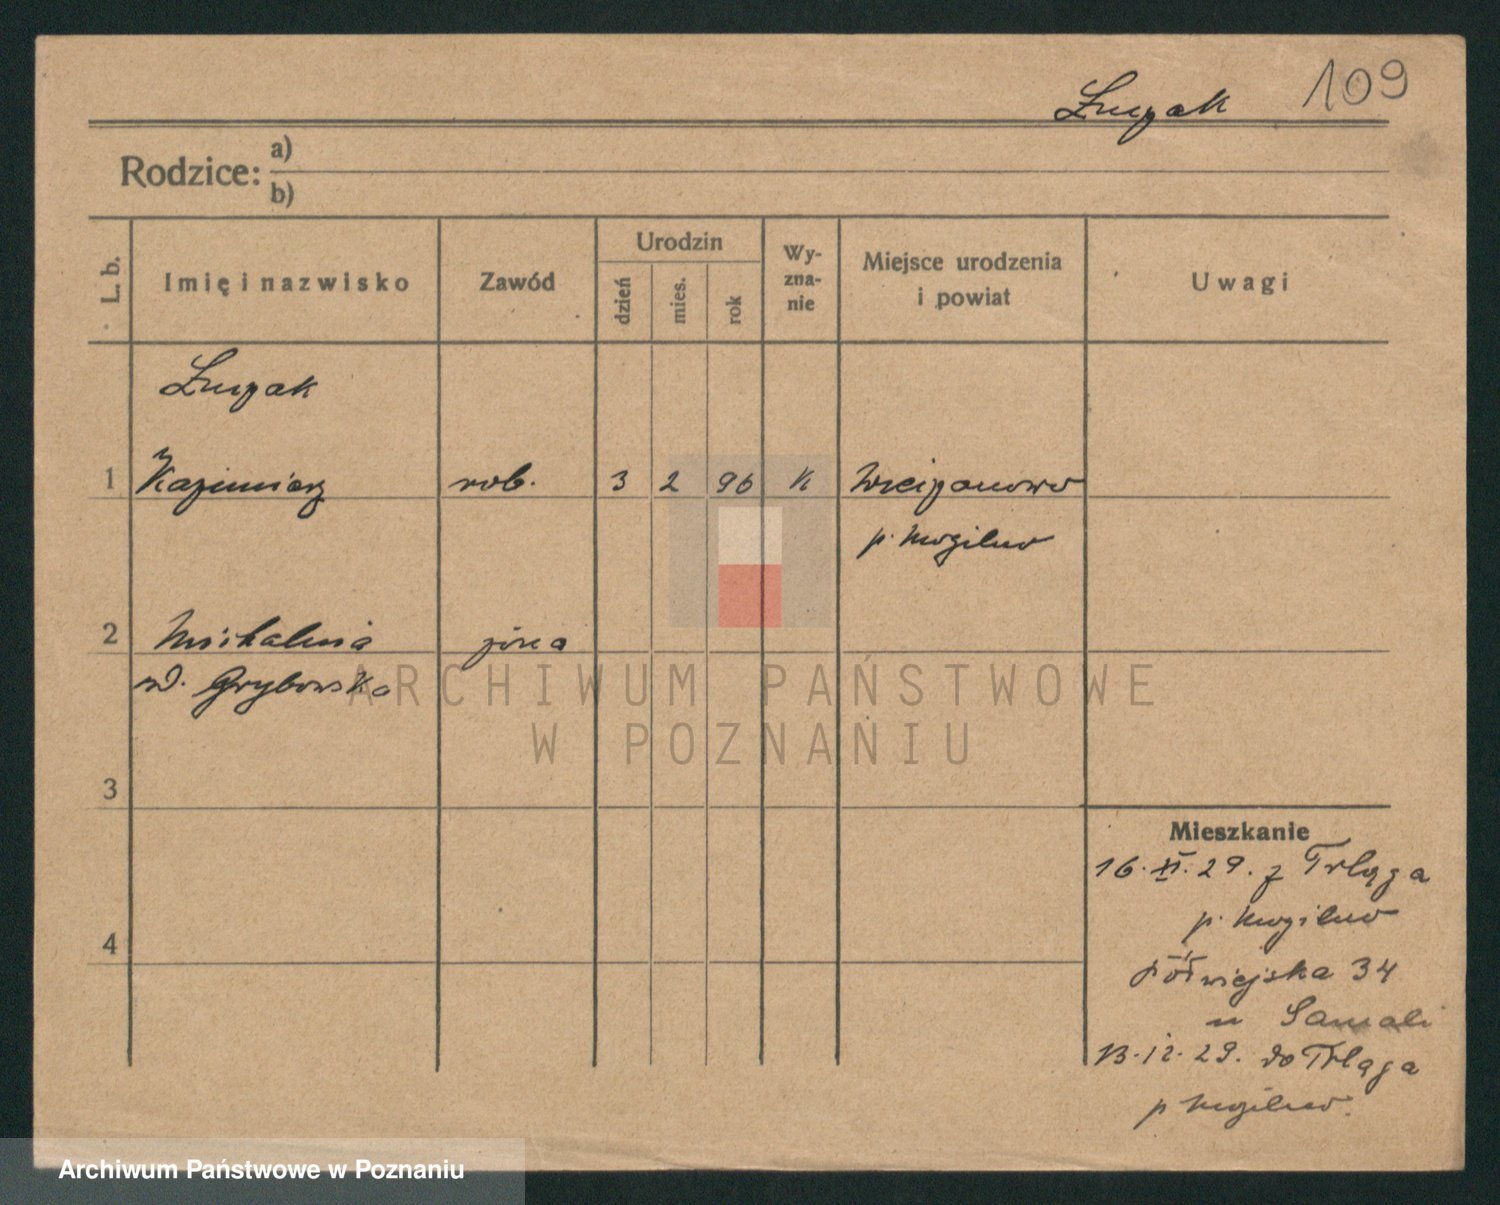 109
Rodzice: a)
b)
L. b.
Imię i nazwisko
Zawód
Urodzin
dzień
mies.
rok
Wy-
zna-
nie
Miejsce urodzenia
i powiat
Uwagi
1 Kazimierz rob. 3 2 96 k
p. Mogilno
2 Michalina żona
Grybowska
3
4
Mieszkanie
16. XI. 29. z Trląga
p. Mogilno
Półwiejska 34
u
13. 12. 29. do Trląga
p Mogilno.
ARCHIWUM PAŃSTWOWE
W POZNANIU
Archiwum Państwowe w Poznaniu